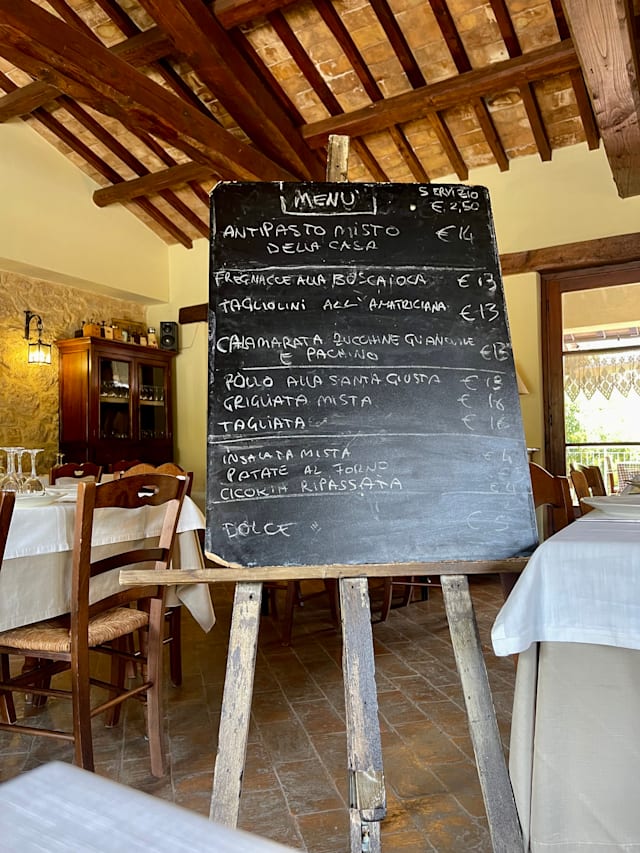 MENU'
SERVIZIO
€ 2,50
ANTIPASTO MISTO € 14
DELLA CASA
FREGNACCE ALLA BOSCAIOLA € 13
TAGLIOLINI ALL'AMATRICIANA € 13
CALAMARATA ZUCCHINE GUANCIALE
E PACHINO €13
POLLO ALLA SANTA GIUSTA € 13
GRIGLIATA MISTA € 16
TAGLIATA € 16
INSALATA MISTA € 4
PATATE AL FORNO €
CICORIA RIPASSATA € 4
DOLCE € 5